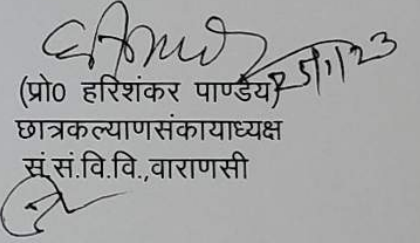 25/1/23
(प्रो0 हरिशंकर पाण्डेय)
छात्रकल्याणसंकायाध्यक्ष
सं.सं.वि.वि.,वाराणसी